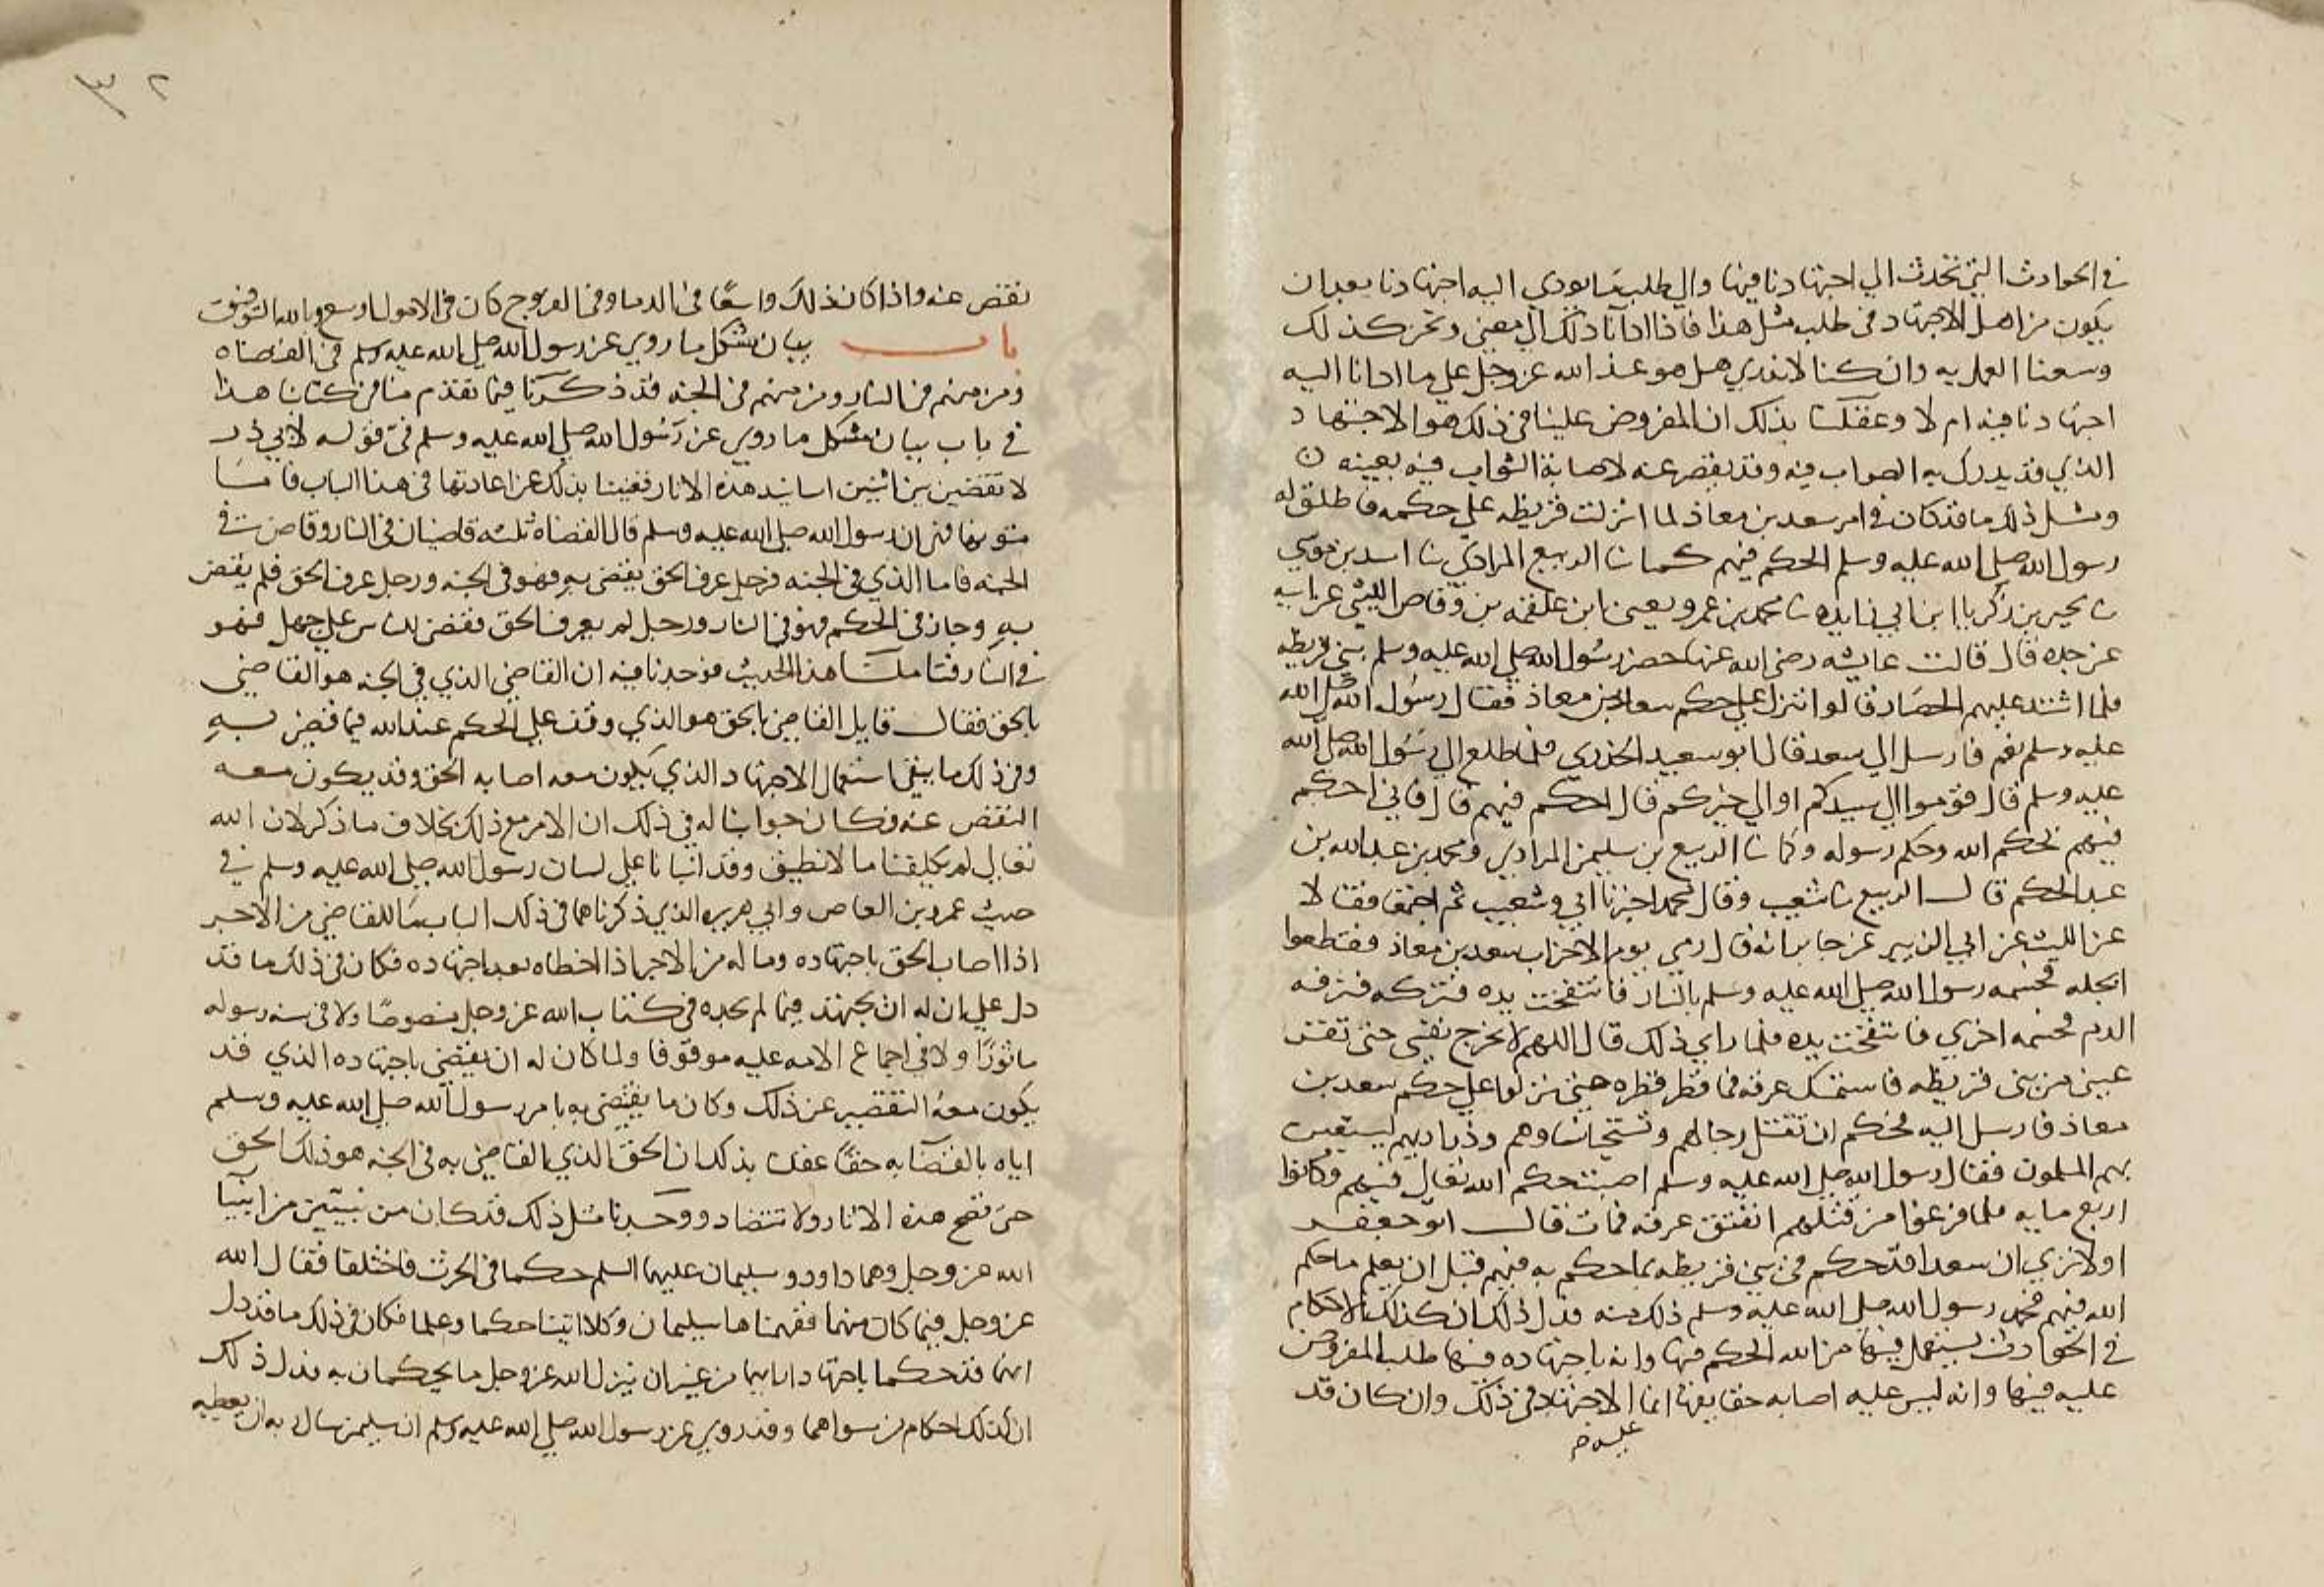 في الحوادث التي تحدث الي اجتهادنا فيها والي طلب ما يودي اليه اجتهادنا بعد ان
يكون من اهل الاجتهاد في طلب مثل هذا فاذا ادانا ذلك الي معني ونحن كذلك
وسعنا العمل به وان كنا لا ندري هل هو عند الله عز وجل علي ما ادانا اليه
اجتهادنا فيه ام لا وعقلنا بذلك ان المفروض علينا في ذلك هو الاجتهاد
الذي قد يدرك به الصواب فيه وقد يقصر عنه لاصابة الثواب فيه بعينه
ومثل ذلك ما قد كان في امر سعد بن معاذ لما انزلت قريظه علي حكمه فاطلق له
رسول الله صلي الله عليه وسلم الحكم فيهم كما نا الربيع المرادي نا اسد بن موسي
نا يحيي بن زكريا ابن ابي زايده نا محمد بن عمرو يعني ابن علقمه بن وقاص الليثي عن ابيه
عن جده قال قالت عايشه رضي الله عنها حصر رسول الله صلي الله عليه وسلم بني قريظه
فلما اشتد عليهم الحصار قالوا ننزل علي حكم سعد بن معاذ فقال رسول الله صلي الله
عليه وسلم نعم فارسل الي سعد قال ابو سعيد الخدري فلما طلع الي رسول الله صلي الله
عليه وسلم قال قوموا الي سيدكم او الي خيركم قال احكم فيهم قال فاني احكم
فيهم بحكم الله وحكم رسوله وكما نا الربيع بن سليمن المرادي ومحمد بن عبد الله بن
عبد الحكم قال الربيع نا شعيب وقال محمد اخبرنا ابي وشعيب ثم اجتمعا فقالا
عن الليث عن ابي الزبير عن جابر انه قال رمي يوم الاحزاب سعد بن معاذ فقطعوا
ابجله فحسمه رسول الله صلي الله عليه وسلم بالنار فانتفخت يده فتركه فنزفه
الدم فحسمه اخري فانتفخت يده فلما راي ذلك قال اللهم لا تخرج نفسي حتي تقر
عيني من بني قريظه فاستمسك عرقه فما قطر قطره حتي نزلوا علي حكم سعد بن
معاذ فارسل اليه فحكم ان تقتل رجالهم وتستحيا نساوهم وذراريهم ليستعين
بهم المسلمون فقال رسول الله صلي الله عليه وسلم اصبت حكم الله تعالي فيهم وكانوا
اربع مايه فلما فرغوا من قتلهم انفتق عرقه فمات قال ابو جعفر
اولا تري ان سعدا قد حكم في بني قريظه بما حكم به فيهم قبل ان يعلم ما حكم
الله فيهم فحمد رسول الله صلي الله عليه وسلم ذلك منه فدل ذلك ان كذلك الاحكام
في الحوادث يستعمل فيها من اله الحكم فيها وانه باجتهاده فيها طلب المفروض
عليه فيها وانه ليس عليه اصابه حقايقها انما الاجتهاد في ذلك وان كان قد
عليه صح
٣٢
نقص عنه واذا كان ذلك واسعا في الدما وفي الفروج كان في الاموال اوسع وبالله التوفيق
باب بيان مشكل ما روي عن رسول الله صلي الله عليه وسلم في القضاه
ومن منهم في النار ومن منهم في الجنه قد ذكرنا فيما تقدم منا من كتابنا هذا
في باب بيان مشكل ما روي عن رسول الله صلي الله عليه وسلم في قوله لابي ذر
لا تقضين بين اثنين اسانيد هذه الاثار فغنينا بذلك عن اعادتها في هذا الباب فاما
متونها فهي ان رسول الله صلي الله عليه وسلم قال القضاه ثلثه قاضيان في النار وقاض في
الجنه فاما الذي في الجنه فرجل عرف الحق يقضي به فهو في الجنه ورجل عرف الحق فلم يقض
به وجار في الحكم فهو في النار ورجل لم يعرف الحق فقضي للناس علي جهل فهو
في النار فتاملنا هذا الحديث فوجدنا فيه ان القاضي الذي في الجنه هو القاضي
بالحق فقال قايل القاضي بالحق هو الذي وقف علي الحكم عند الله فيما قضي به
وفي ذلك ما ينفي استعمال الاجتهاد الذي يكون معه اصابه الحق وقد يكون معه
النقص عنه فكان جوابنا له في ذلك ان الامر مع ذلك بخلاف ما ذكر لان الله
تعالي لم يكلفنا ما لا نطيق وقد انبانا علي لسان رسول الله صلي الله عليه وسلم في
حديث عمرو بن العاص وابي هريره الذي ذكرناهما في ذلك الباب ما للقاضي من الاجر
اذا اصاب الحق باجتهاده وما له من الاجر اذا اخطاه بعد اجتهاده فكان في ذلك ما قد
دل علي ان له ان يجتهد فيما لم يجده في كتاب الله عز وجل منصوصا ولا في سنه رسوله
ماثورا ولا في اجماع الامه عليه موقوفا ولما كان له ان يقضي باجتهاده الذي قد
يكون معه التقصير عن ذلك وكان ما يقضي به بامر رسول الله صلي الله عليه وسلم
اياه بالقضا به حقا عقلنا بذلك ان الحق الذي القاضي به في الجنه هو ذلك الحق
حتي تصح هذه الاثار ولا تتضاد ووجدنا مثل ذلك قد كان من نبيين من انبيا
الله عز وجل وهما داود وسليمان عليهما السلم حكما في الحرث فاختلفا فقال الله
عز وجل فيما كان منهما ففهمناها سليمان وكلا اتينا حكما وعلما فكان في ذلك ما قد دل
انهما قد حكما باجتهاد ارايهما من غير ان ينزل الله عز وجل ما يحكمان به فدل ذلك
ان كذلك احكام من سواهما وقد روي عن رسول الله صلي الله عليه وسلم ان سليمن سال ربه ان يعطيه